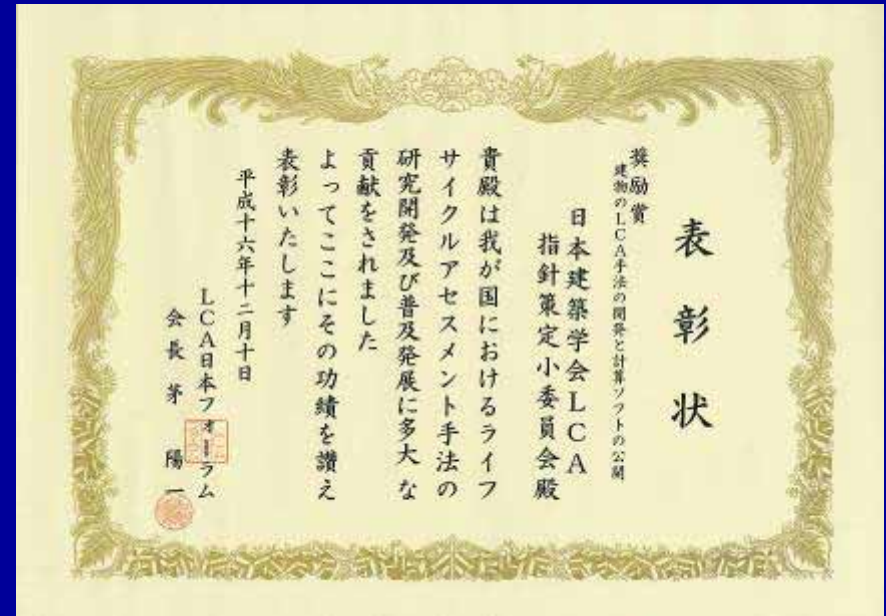 表彰状
奨励賞
建物のLCA手法の開発と計算ソフトの公開
日本建築学会LCA
指針策定小委員会殿
貴殿は我が国におけるライフ
サイクルアセスメント手法の
研究開発及び普及発展に多大な
貢献をされました
よってここにその功績を讃え
表彰いたします
平成十六年十二月十日
LCA日本フォーラム
会長 茅 陽一